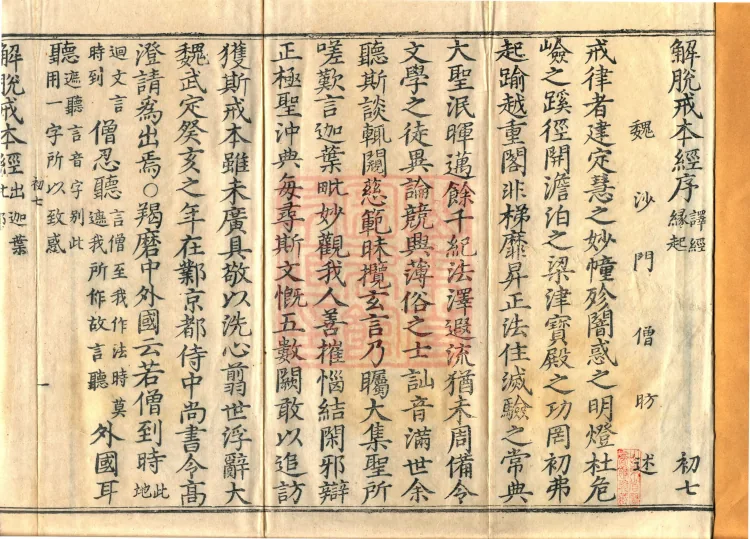 解脫戒本經序 譯經緣起 初七
魏沙門僧昉述
戒律者建定慧之妙幢殄闇惑之明燈杜危
嶮之蹊徑開澹泊之梁津寶殿之功罔初弗
起踰越重閣非梯靡昇正法住滅驗之常典
大聖泯暉邁餘千紀法澤遐流猶未周備令
文學之徒異論競興薄俗之士訕音滿世余
聽斯談輒闚慈範昧攬玄言乃矚大集聖所
嗟歎言迦葉毗妙觀我人善摧惱結閑邪辯
正極聖沖典每尋斯文慨五數闕敢以追訪
獲斯戒本雖未廣具敬以洗心翦世浮辭大
魏武定癸亥之年在鄴京都侍中尚書令高
澄請為出焉○羯磨中外國云若僧到時此地
迴文言時到僧忍聽言僧至我作法時莫遮我所作故言聽外國耳
聽遮聽言音字別此聽用一字所以致惑
初七 一
解脫戒本經 出迦葉